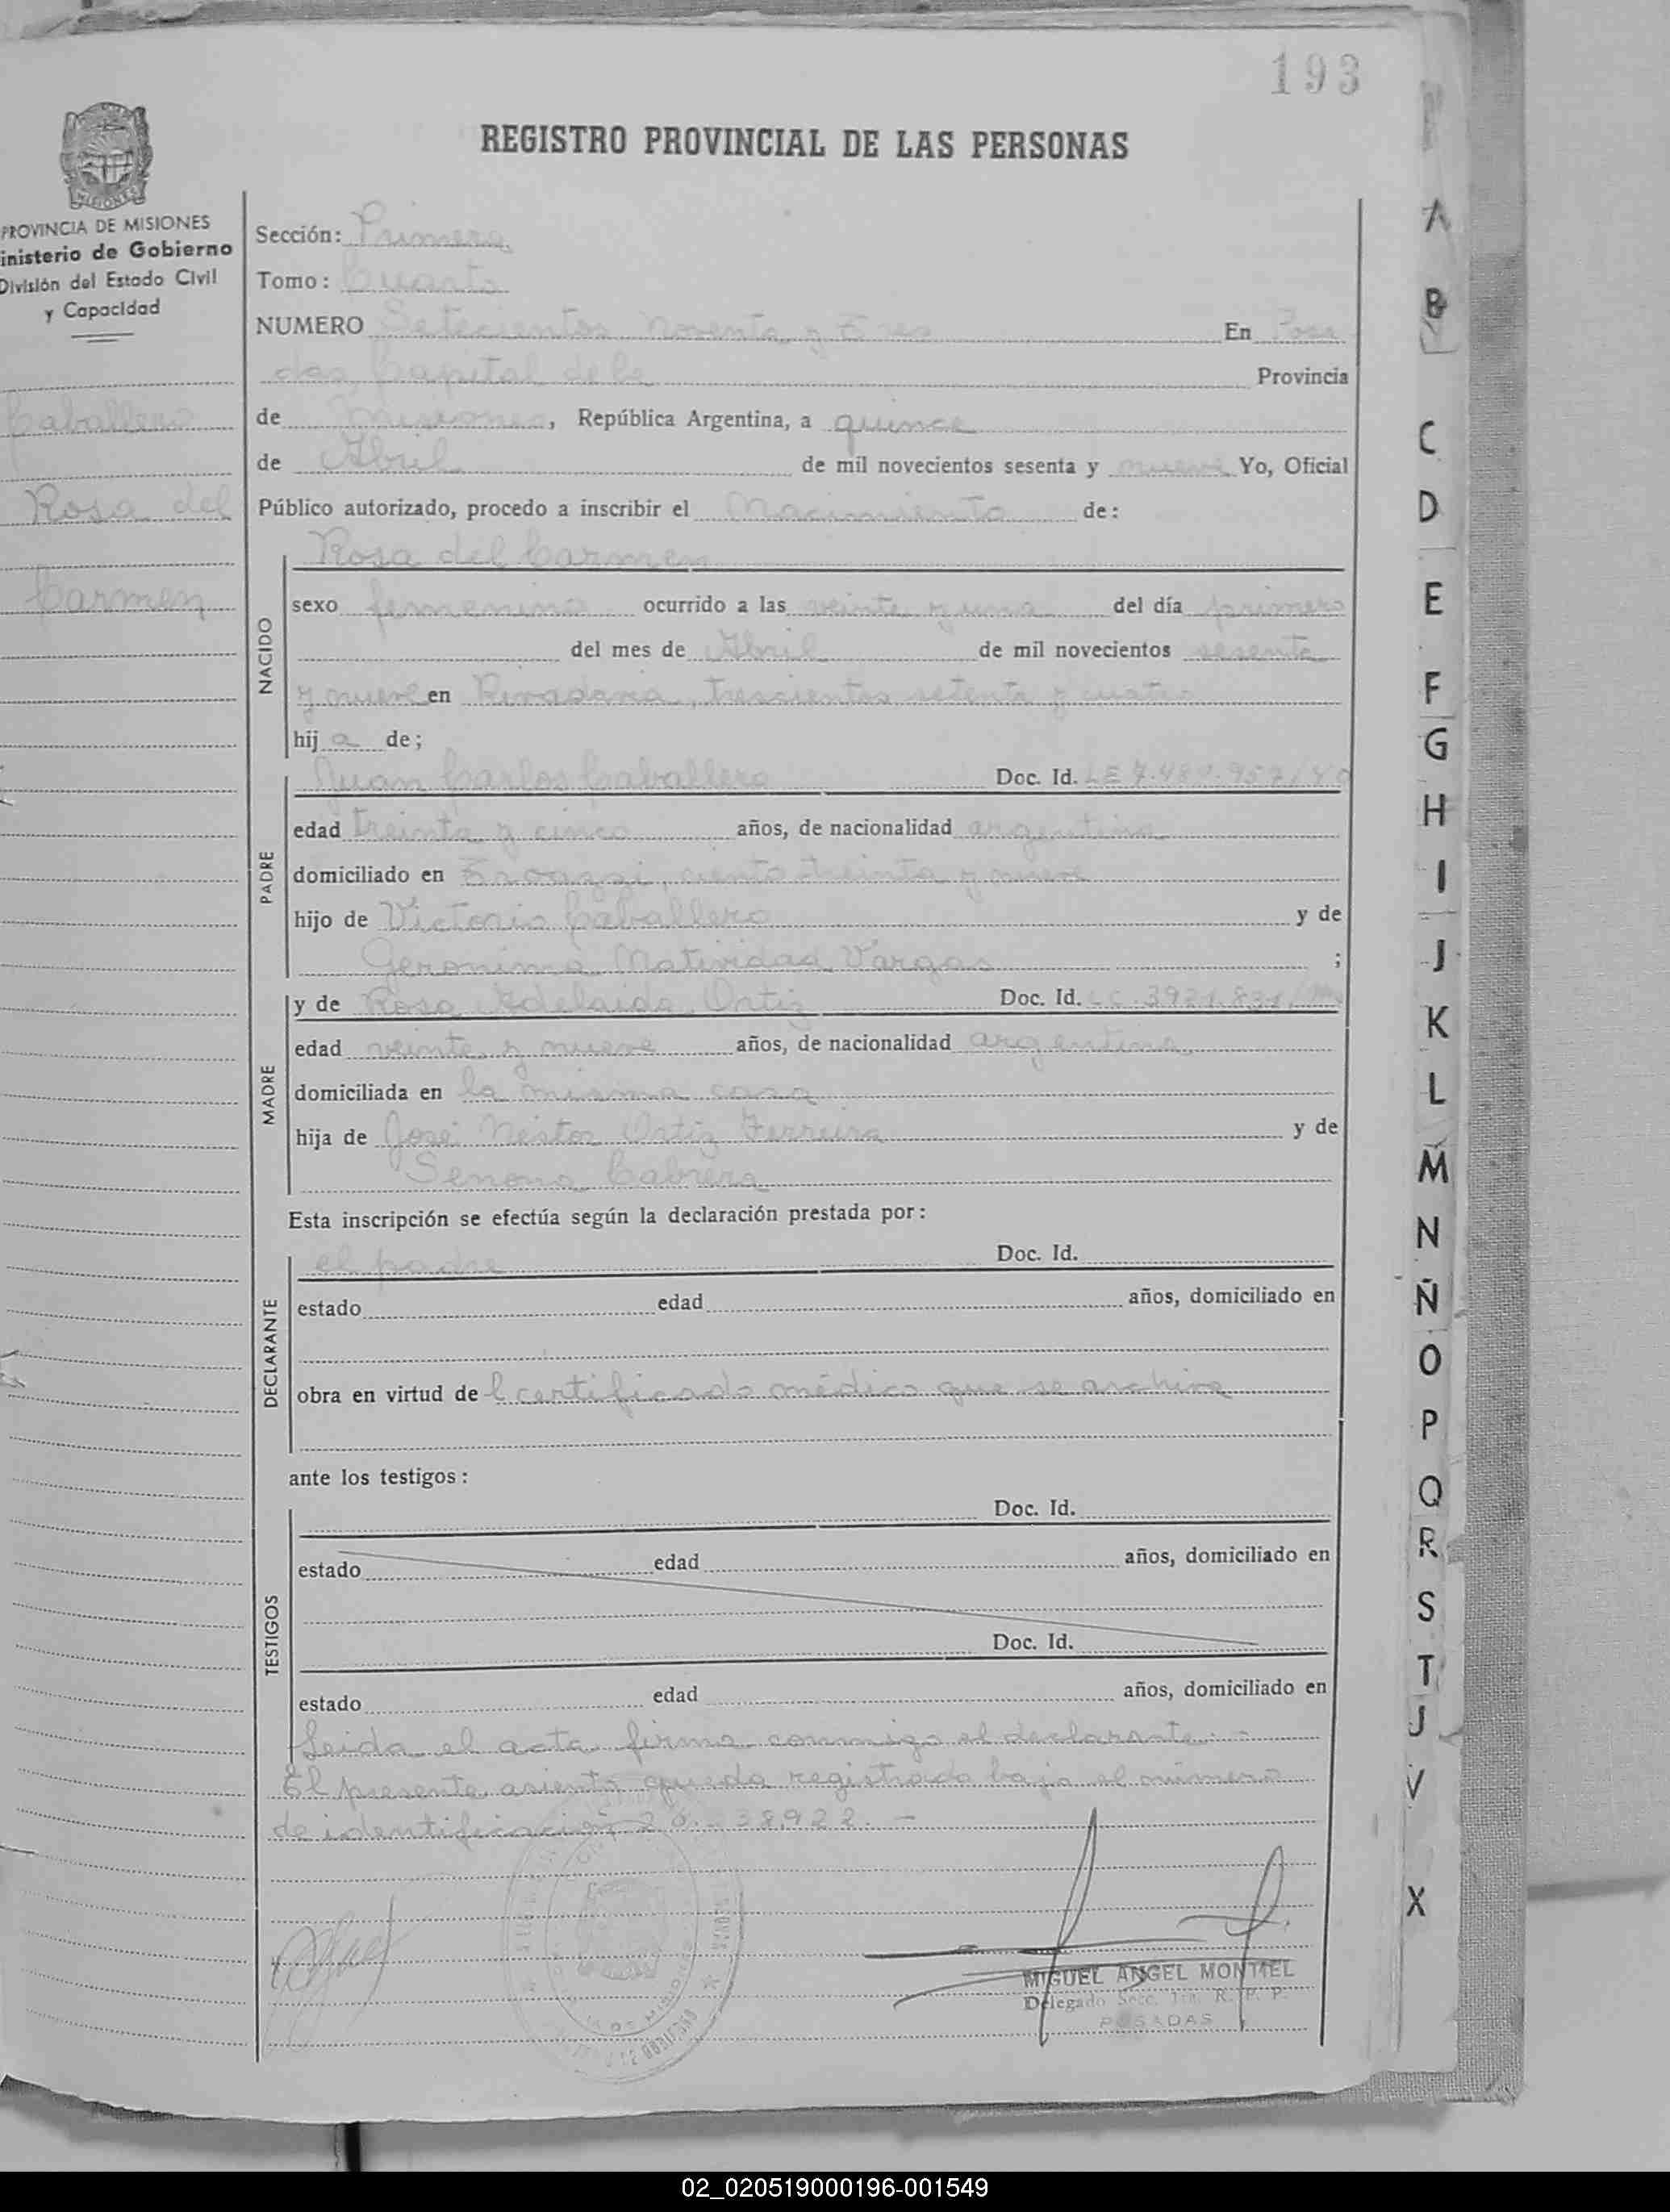 193
REGISTRO PROVINCIAL DE LAS PERSONAS
PROVINCIA DE MISIONES
inisterio de Gobierno
División del Estado Civil
y Capacidad
Caballero
Rosa del
Carmen
Sección: Primera
Tomo: Cuarto
NUMERO Setecientos noventa y tres En Posa
das, Capital de la Provincia
de Misiones, República Argentina, a quince
de Abril de mil novecientos sesenta y nueve Yo, Oficial
Público autorizado, procedo a inscribir el Nacimiento de:
Rosa del Carmen
NACIDO
sexo femenino ocurrido a las veinte y una del día primero
del mes de Abril de mil novecientos sesenta
y nueve en Rivadavia, trescientos setenta y cuatro
hij a de;
PADRE
Juan Carlos Caballero Doc. Id. LE 7.480.957/40
edad treinta y cinco años, de nacionalidad argentina
domiciliado en ciento treinta y nueve
hijo de Victorio Caballero y de
Geronima Natividad Vargas ;
MADRE
y de Rosa Adelaida Ortiz Doc. Id. LC. 3921.831/
edad veinte y nueve años, de nacionalidad argentina,
domiciliada en la misma casa
hija de José Néstor Ortiz Ferreira y de
Senona Cabrera
Esta inscripción se efectúa según la declaración prestada por:
DECLARANTE
el padre Doc. Id.
estado edad años, domiciliado en
obra en virtud de l certificado médico que se archiva
ante los testigos:
TESTIGOS
Doc. Id.
estado edad años, domiciliado en
Doc. Id.
estado edad años, domiciliado en
Leida el acta firma conmigo el declarante.-
El presente asiento queda registrado bajo el número
de identificación 20.-38922.-
MIGUEL ANGEL MONTIEL
Delegado Secc. 1ra. R. P. P.
POSADAS
A
B
C
D
E
F
G
H
I
J
K
L
M
N
Ñ
O
P
Q
R
S
T
U
V
X
02_020519000196-001549